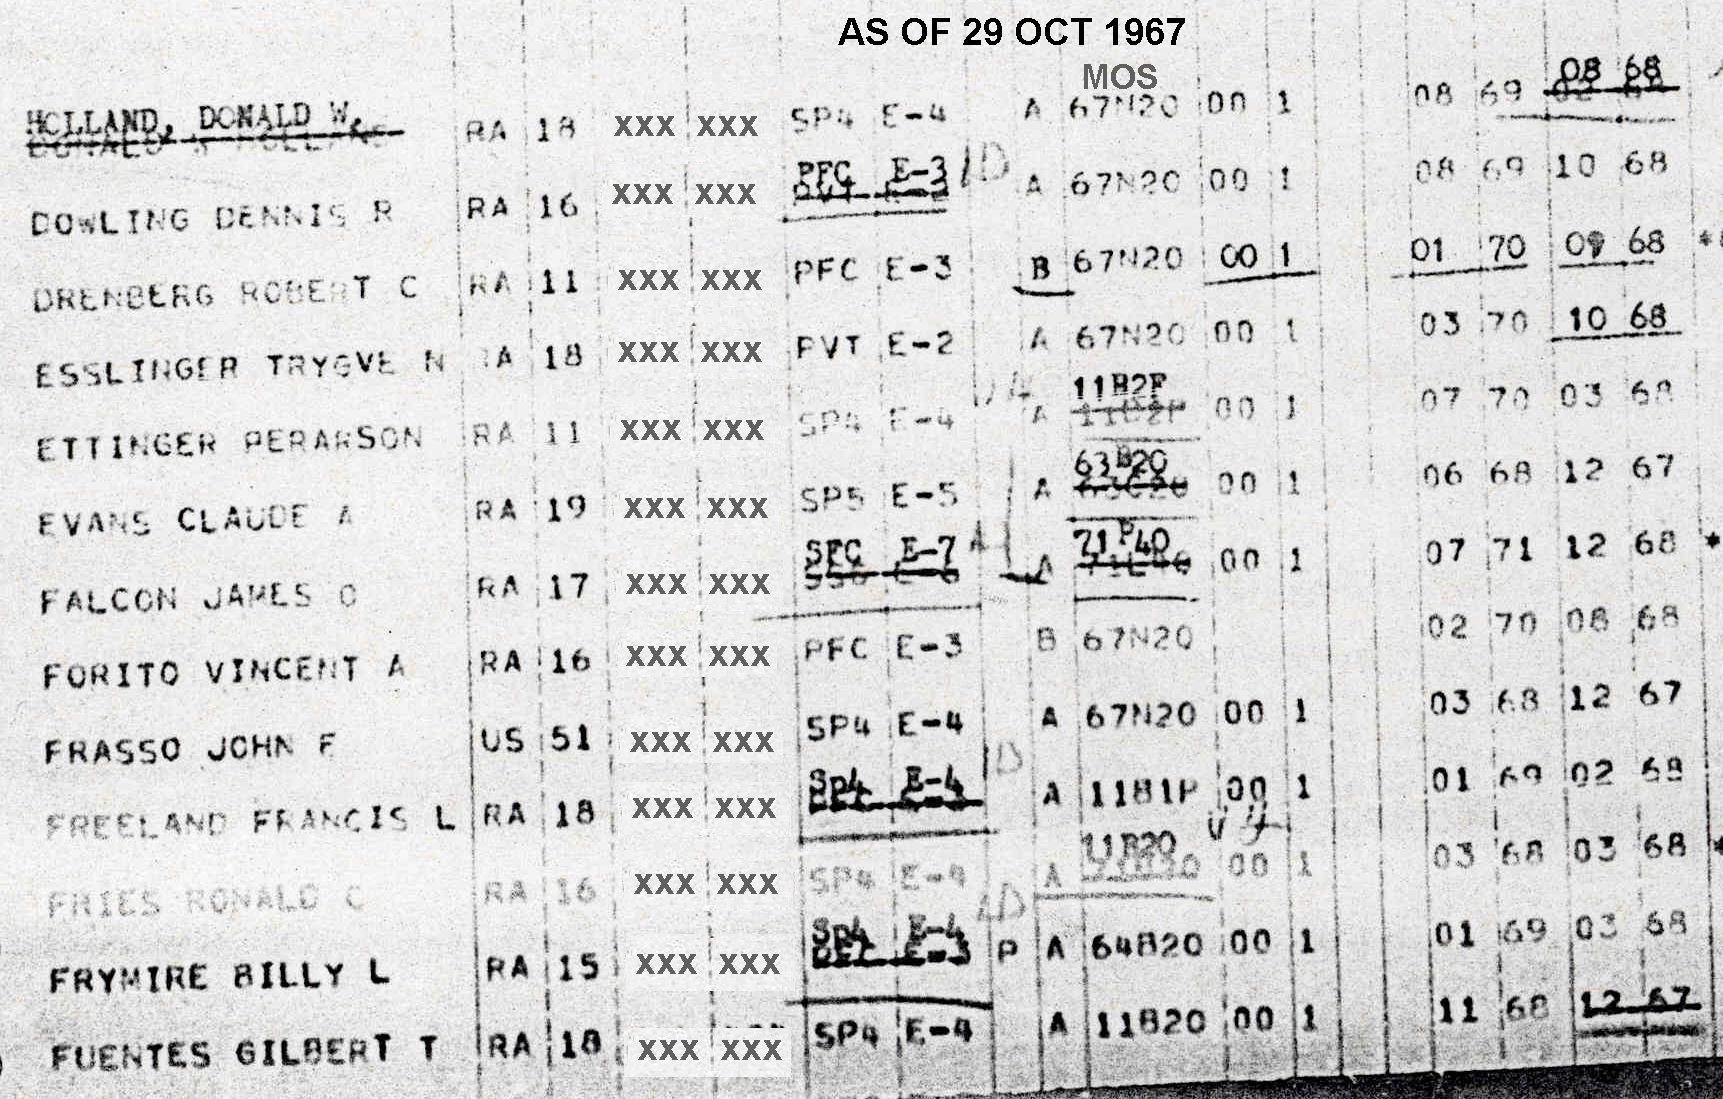 AS OF 29 OCT 1967
MOS
HOLLAND, DONALD W. RA 18 XXX XXX SP4 E-4 A 67N20 00 1 08 69 08 68
DOWLING DENNIS R RA 16 XXX XXX PFC E-3 A 67N20 00 1 08 69 10 68
DRENBERG ROBERT C RA 11 XXX XXX PFC E-3 B 67N20 00 1 01 70 09 68 *
ESSLINGER TRYGVE N A 18 XXX XXX PVT E-2 A 67N20 00 1 03 70 10 68
ETTINGER PERARSON RA 11 XXX XXX SP4 E-4 A 11B2P 00 1 07 70 03 68
EVANS CLAUDE A RA 19 XXX XXX SP5 E-5 A 63B20 00 1 06 68 12 67
FALCON JAMES O RA 17 XXX XXX SFC E-7 A 71P40 00 1 07 71 12 68 *
FORITO VINCENT A RA 16 XXX XXX PFC E-3 B 67N20 02 70 08 68
FRASSO JOHN F US 51 XXX XXX SP4 E-4 A 67N20 00 1 03 68 12 67
FREELAND FRANCIS L RA 18 XXX XXX Sp4 E-4 A 11B1P 00 1 01 69 02 68
FRIES RONALD C RA 16 XXX XXX SP4 E-4 A 11B20 00 1 03 68 03 68 *
FRYMIRE BILLY L RA 15 XXX XXX Sp4 E-4 P A 64B20 00 1 01 69 03 68
FUENTES GILBERT T RA 18 XXX XXX SP4 E-4 A 11B20 00 1 11 68 12 67